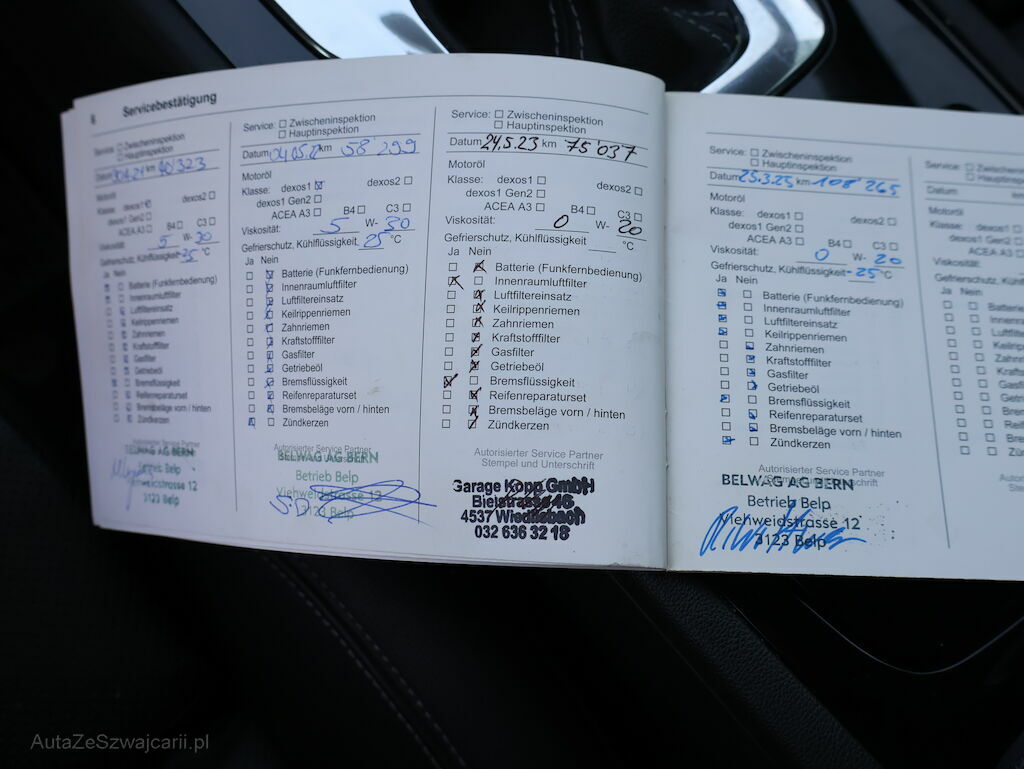 6
Servicebestätigung
Service: ☐ Zwischeninspektion
☐ Hauptinspektion
Datum km 40 323
Motoröl
Klasse: dexos1 dexos2 ☐
dexos1 Gen2 ☐
ACEA A3 ☐ B4 ☐ C3 ☐
Viskosität: 5 W- 30
Gefrierschutz, Kühlflüssigkeit °C
Ja Nein
Batterie (Funkfernbedienung)
Innenraumluftfilter
Luftfiltereinsatz
Keilrippenriemen
Zahnriemen
Kraftstofffilter
Gasfilter
Getriebeöl
Bremsflüssigkeit
Reifenreparaturset
Bremsbeläge vorn / hinten
Zündkerzen
Autorisierter Service Partner
BELWAG AG BERN
Betrieb Belp
Viehweidstrasse 12
3123 Belp
Service: ☐ Zwischeninspektion
☐ Hauptinspektion
Datum 04.05. km 58'299
Motoröl
Klasse: dexos1 ☒ dexos2 ☐
dexos1 Gen2 ☐
ACEA A3 ☐ B4 ☐ C3 ☐
Viskosität: 5 W- 30
Gefrierschutz, Kühlflüssigkeit 25 °C
Ja Nein
Batterie (Funkfernbedienung)
Innenraumluftfilter
Luftfiltereinsatz
Keilrippenriemen
Zahnriemen
Kraftstofffilter
Gasfilter
Getriebeöl
Bremsflüssigkeit
Reifenreparaturset
Bremsbeläge vorn / hinten
Zündkerzen
Autorisierter Service Partner
BELWAG AG BERN
Betrieb Belp
Viehweidstrasse 12
3123 Belp
Service: ☐ Zwischeninspektion
☐ Hauptinspektion
Datum 24.5.23 km 75'037
Motoröl
Klasse: dexos1 ☐ dexos2 ☐
dexos1 Gen2 ☐
ACEA A3 ☐ B4 ☐ C3 ☐
Viskosität: 0 W- 20
Gefrierschutz, Kühlflüssigkeit °C
Ja Nein
☐ ☒ Batterie (Funkfernbedienung)
☒ ☐ Innenraumluftfilter
☐ ☒ Luftfiltereinsatz
☐ ☒ Keilrippenriemen
☐ ☒ Zahnriemen
☐ ☒ Kraftstofffilter
☐ ☒ Gasfilter
☐ ☒ Getriebeöl
☒ ☐ Bremsflüssigkeit
☐ ☒ Reifenreparaturset
☐ ☒ Bremsbeläge vorn / hinten
☐ ☒ Zündkerzen
Autorisierter Service Partner
Stempel und Unterschrift
Garage Kopp GmbH
Bielstrasse 16
4537 Wiedlisbach
032 636 32 18
Service: ☐ Zwischeninspektion
☐ Hauptinspektion
Datum 25.3.25 km 108'265
Motoröl
Klasse: dexos1 ☐ dexos2 ☐
dexos1 Gen2 ☐
ACEA A3 ☐ B4 ☐ C3 ☐
Viskosität: 0 W- 20
Gefrierschutz, Kühlflüssigkeit -25 °C
Ja Nein
Batterie (Funkfernbedienung)
Innenraumluftfilter
Luftfiltereinsatz
Keilrippenriemen
Zahnriemen
Kraftstofffilter
Gasfilter
Getriebeöl
Bremsflüssigkeit
Reifenreparaturset
Bremsbeläge vorn / hinten
Zündkerzen
Autorisierter Service Partner
BELWAG AG BERN
Betrieb Belp
Viehweidstrasse 12
3123 Belp
Service:
Datum
Motoröl
Klasse: dexos1
dexos1 Gen2
ACEA A3
Viskosität:
Gefrierschutz, Kühl
Ja Nein
AutaZeSzwajcarii.pl